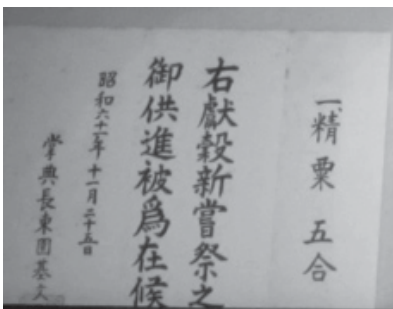 一、精粟 五合
右献穀新嘗祭之
御供進被為在候
昭和六十一年十一月二十五日
掌典長東園基文